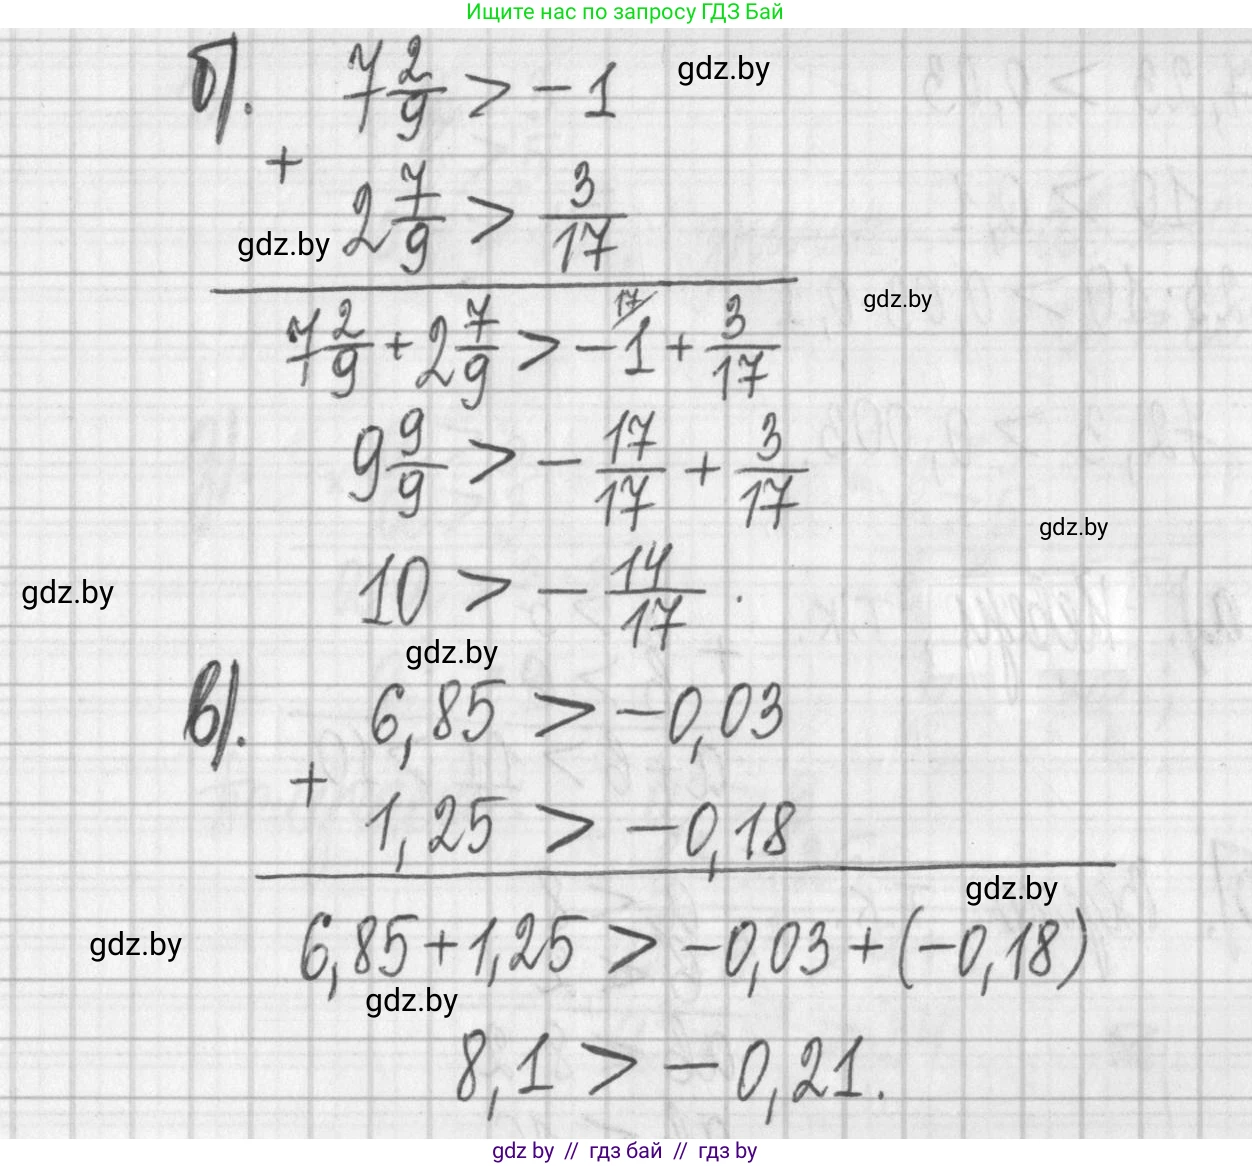 Ищите нас по запросу ГДЗ Бай
б). 7 2/9 > -1
gdz.by
+
2 7/9 > 3/17
gdz.by
7 2/9 + 2 7/9 > -1 17/ + 3/17
gdz.by
9 9/9 > - 17/17 + 3/17
gdz.by
10 > - 14/17 .
gdz.by
gdz.by
в). 6,85 > -0,03
+
1,25 > -0,18
gdz.by
6,85 + 1,25 > -0,03 + (-0,18)
gdz.by
gdz.by
8,1 > -0,21.
gdz by // гдз бай // гдз by